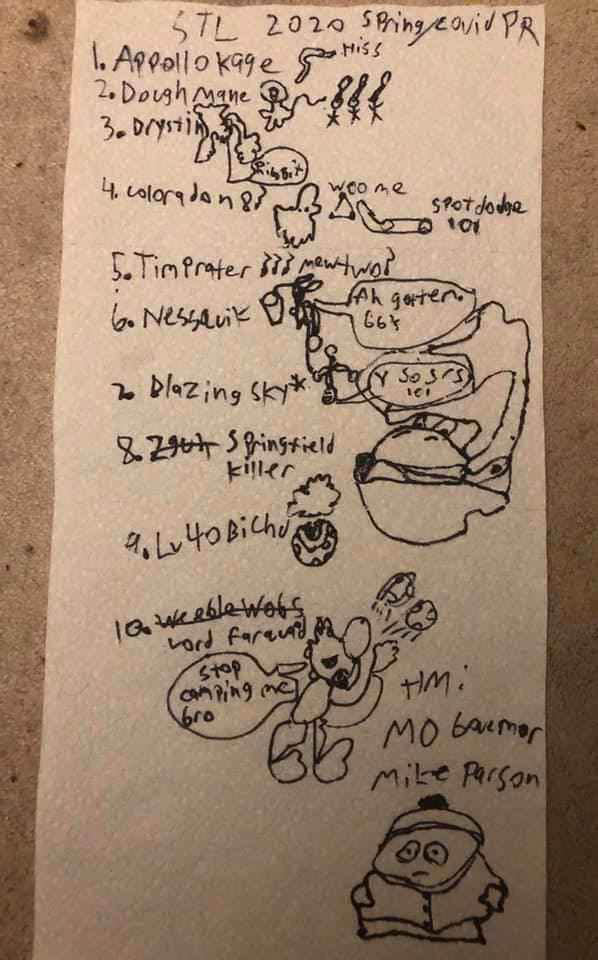 STL 2020 Spring/covid PR
1. Appollokage
Hiss
2. Doughmane
3. Drystin
Ribbit
4. Coloradon8}
woo me
spotdodge
101
5. Timprater }}} mewtwo}
6. Nessquik
Ah gotten.
66%
7. Blazing Sky*
Y So Srs
101
8. Zguh Springfield
Killer
9. Lv40Bichu
10. WeebleWobs
Lord Farquad
stop
camping me
bro
HM:
MO Governor
Mike Parson